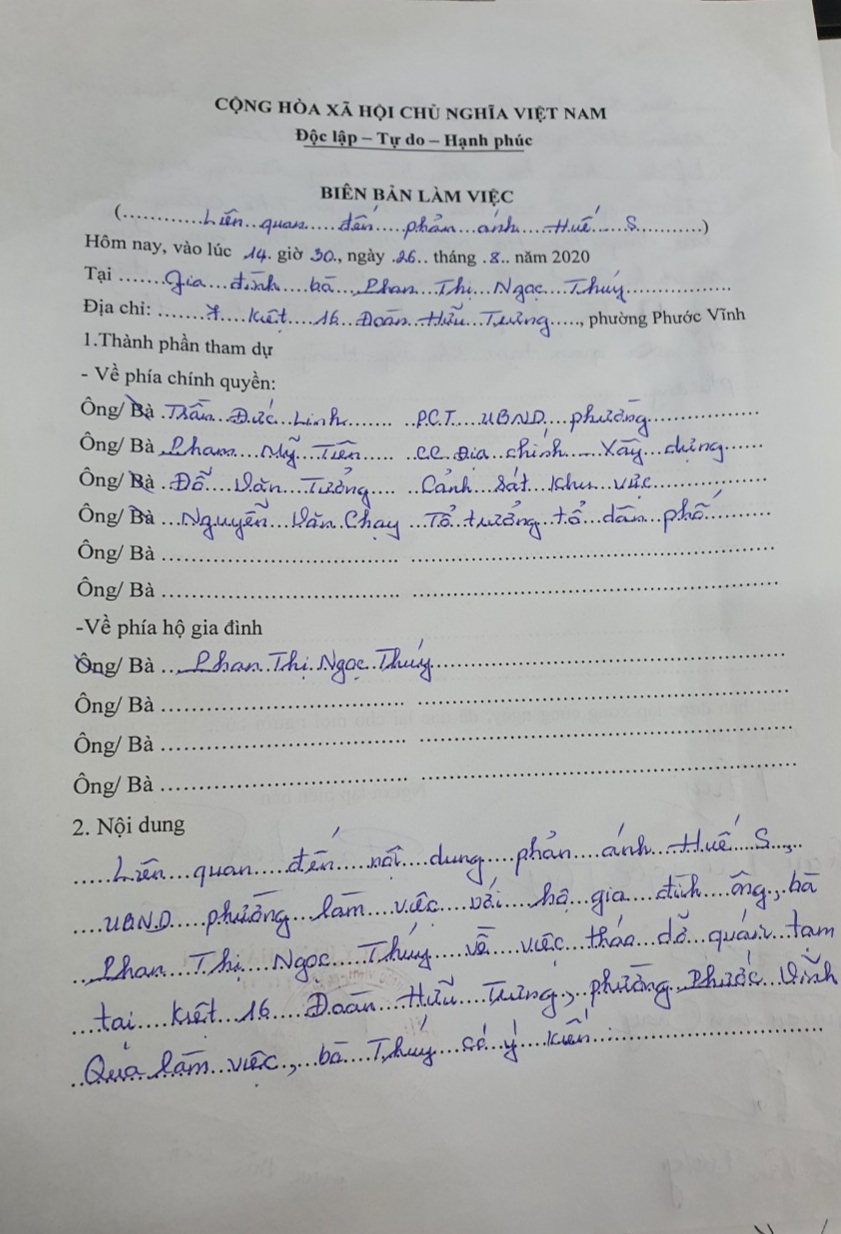 CỘNG HÒA XÃ HỘI CHỦ NGHĨA VIỆT NAM
Độc lập – Tự do – Hạnh phúc
BIÊN BẢN LÀM VIỆC
(............Liên quan đến phản ánh Huế S............)
Hôm nay, vào lúc 14 giờ 30, ngày 26 tháng 8 năm 2020
Tại Gia đình bà Phan Thị Ngọc Thúy
Địa chỉ: Kiệt 16 Đoàn Hữu Trưng, phường Phước Vĩnh
1.Thành phần tham dự
- Về phía chính quyền:
Ông/ Bà Trần Đức Linh P.C.T UBND phường
Ông/ Bà Phạm Mỹ Tiên CC Địa chính Xây dựng
Ông/ Bà Đỗ Văn Tưởng Cảnh sát khu vực
Ông/ Bà Nguyễn Văn Chạy Tổ trưởng tổ dân phố
Ông/ Bà
Ông/ Bà
-Về phía hộ gia đình
Ông/ Bà Phan Thị Ngọc Thúy
Ông/ Bà
Ông/ Bà
Ông/ Bà
2. Nội dung
Liên quan đến nội dung phản ánh Huế S,
UBND phường làm việc với hộ gia đình ông, bà
Phan Thị Ngọc Thúy về việc tháo dỡ quán tạm
tại Kiệt 16 Đoàn Hữu Trưng, phường Phước Vĩnh
Qua làm việc, bà Thúy có ý kiến: